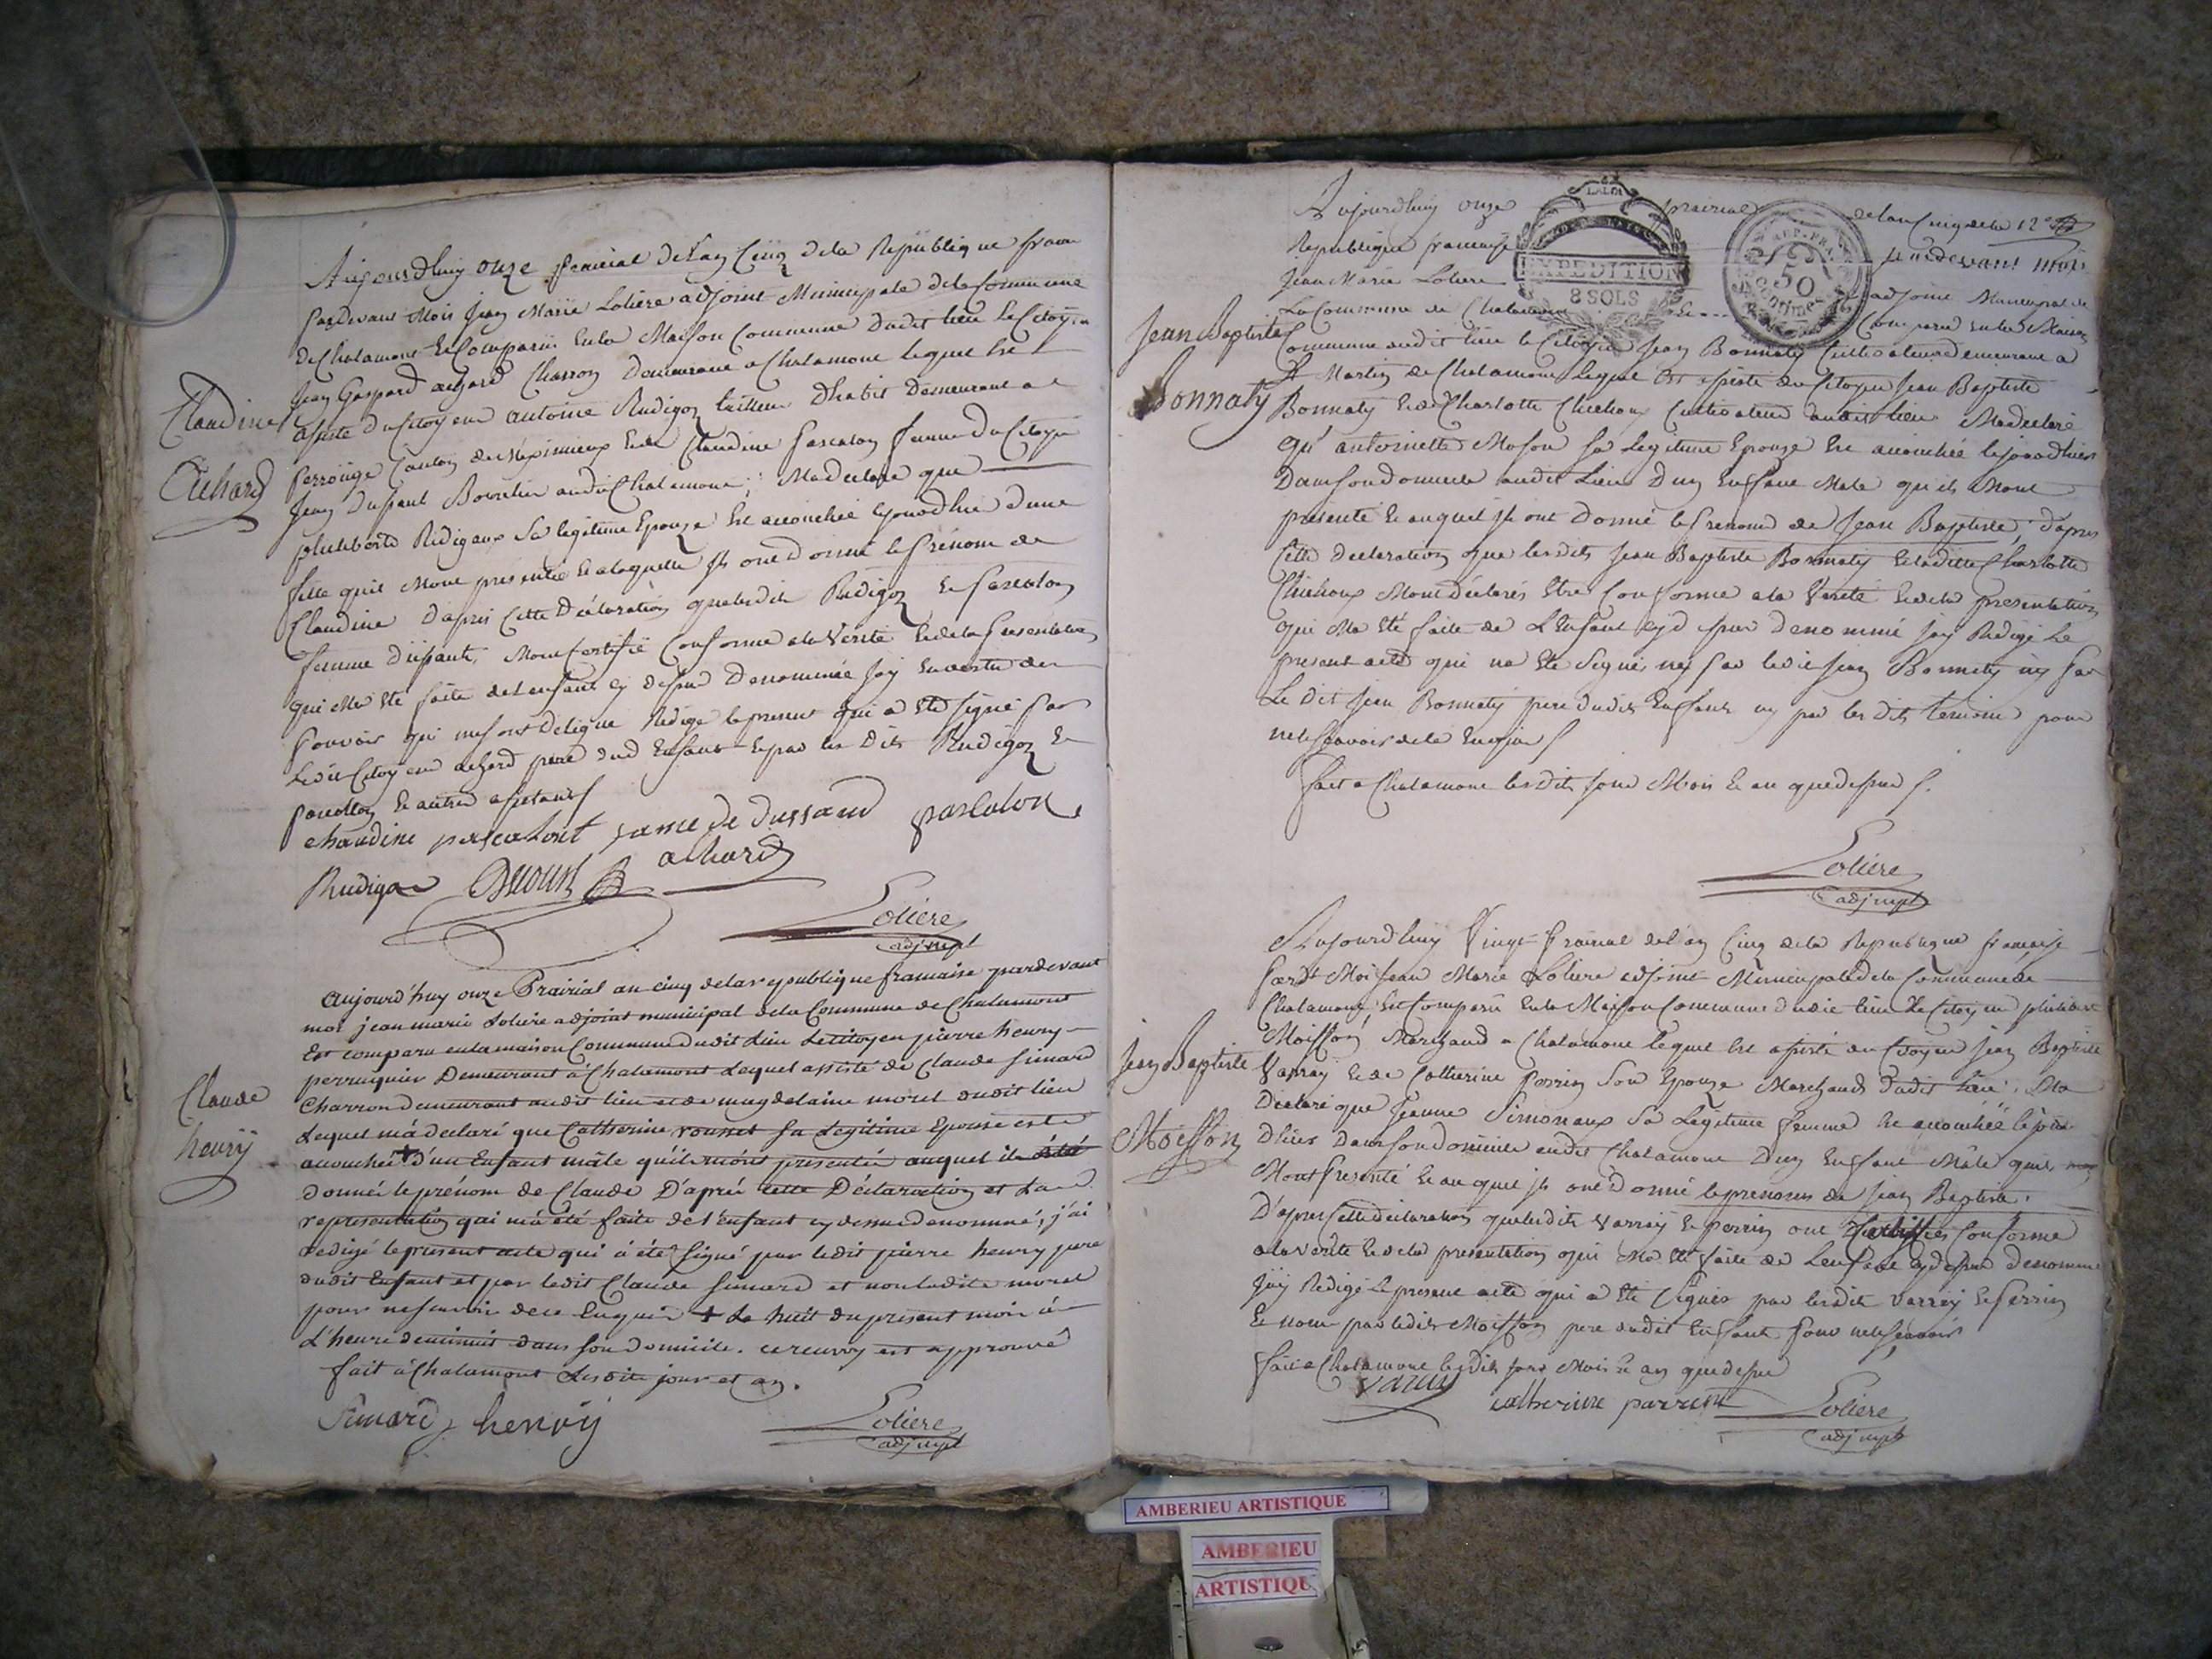 Claudine
Achard
Aujourdhuy onze prairial de l'an Cinq de la Republique fran
pardevant Moi Jean Marie Loliere adjoint Municipale de la Commune
de Chalamont Est Comparu En la Maison Commune dudit lieu Le Citoyen
Jean Gaspard achard Charron Demeurant a Chalamont lequel Est
assisté du Citoyen antoine Rudigoz tailleur Dhabit Demeurant a
perrouge Canton de Meximieux Et de Claudine pascalon femme du Citoyen
Jean Bourelier audit Chalamont; Ma declaré que
philiberte Rudigoz Sa legitime Epouze Est accouchée dune
fille quil Mont presentée Et a laquelle ils ont Donné le Prénom de
Claudine D'apres Cette Déclaration que lesdits Rudigoz Et pascalon
femme Mont Certifié Conforme a la Verité Et de la presentation
qui Ma Eté faite de l'enfant cy dessus Denommée Jay En vertu des
pouvoirs qui me sont Delegue Redigé le present qui a Eté signé par
Ledit Citoyen achard pere dud Enfant Et par les Dits Rudigoz Et
pascallon Et autres
chaudine pascalont fame de dussaud pascalon
Rudigoz achard
Loliere
adj mpl
Claude
henrÿ
aujourd'huy onze Prairial an cinq de la republique francaise pardevant
moi jean marie Loliere adjoint municipal de la Commune de Chalamont
Est comparu en la maison Commune dudit Lieu Le citoyen pierre henry
perruquier Demeurant à Chalamont Lequel assisté de Claude simard
Charron demeurant audit lieu et de magdelaine morel dudit lieu
Lequel m'a declaré que Catherine rousset sa Legitime Epouse est
accouchée + d'un Enfant mâle qu'ils m'ont presenté auquel ils
donné le prénom de Claude D'après cette Déclaration et La
representation qui m'a été faite de l'Enfant cy dessus denommé, j'ai
redigé le present acte qui a été signé par ledit pierre henry pere
dudit Enfant et par ledit Claude simard et non ladite morel
pour ne scavoir de ce Enquis + Le huit du present mois à
L'heure de minuit dans son domicile. ce renvoy est approuvé
fait à Chalamont Lesdits jour et an.
Simard henrÿ
Loliere
adj mpl
LA LOI
EXPEDITION
8 SOLS
REP. FRA.
50
Centimes
Jean Baptiste
Bonnaty
Aujourdhuy onze prairial de lan Cinq de la
Republique francaise pardevant moi
Jean Marie Loliere adjoint Municipal de
La Commune de Chalamont Est Comparu en la Maison
Commune audit lieu le Citoyen Jean Bonnaty Cultivateur demeurant a
St Martin de Chalamont lequel Est assisté du Citoyen Jean Baptiste
Bonnaty Et de Charlotte Cultivateur audit lieu Ma declaré
Qu' antoinette Mason sa legitime Epouze Est accouchée
Dans son domicile audit Lieu Dun Enfant Male qu'ils Mont
presenté Et auquel ils ont Donné le Prenom de Jean Baptiste; dapres
Cette Declaration que lesdits Jean Baptiste Bonnaty Et ladite Charlotte
Mont déclarés Etre Conforme a la Verité Et de la presentation
qui Ma Eté faite de L'Enfant cy dessus Denommé Jay Redigé Le
present acte qui na Eté Signé ny par ledit Jean Bonnaty ny par
Le dit Jean Bonnaty pere dudit Enfant ny par les dits temoins pour
ne le scavoir de ce Enquis
fait a Chalamont lesdits jour Mois Et an que dessus
Loliere
adj mpl
Jean Baptiste
Moisson
Aujourdhuy Vingt Prairial de l'an Cinq de la Republique francaise
Pardt Moi Jean Marie Loliere adjoint Municipale de la Commune de
Chalamont Est Comparu En la Maison Commune dudit lieu Le Citoyen philibert
Moisson Marchand a Chalamont lequel Est assisté du Citoyen Jean Baptiste
Varray Et de Catherine Perrin Son Epouze Marchands dudit lieu; Ma
Declaré que Jeanne Simonaux Sa Legitime femme Est accouchée le jour
Dhier Dans son domicile audit Chalamont Dun Enfant Mâle quils
Mont Presenté Et auquel ils ont Donné le prenom de Jean Baptiste.
D'apres Cette Declaration que lesdits Varray Et perrin ont Conforme
a la verité Et de la presentation qui Ma Eté faite de Lenfant cy dessus denommé
Jay Redigé Le present acte qui a Eté Signé par lesdits Varray Et Perrin
Et non par ledit Moisson pere dudit Enfant Pour ne le scavoir
fait a Chalamont lesdits jour Mois Et an que dessus
Varay catherine parrin
Loliere
adj mpl
AMBERIEU ARTISTIQUE
AMBERIEU
ARTISTIQUE